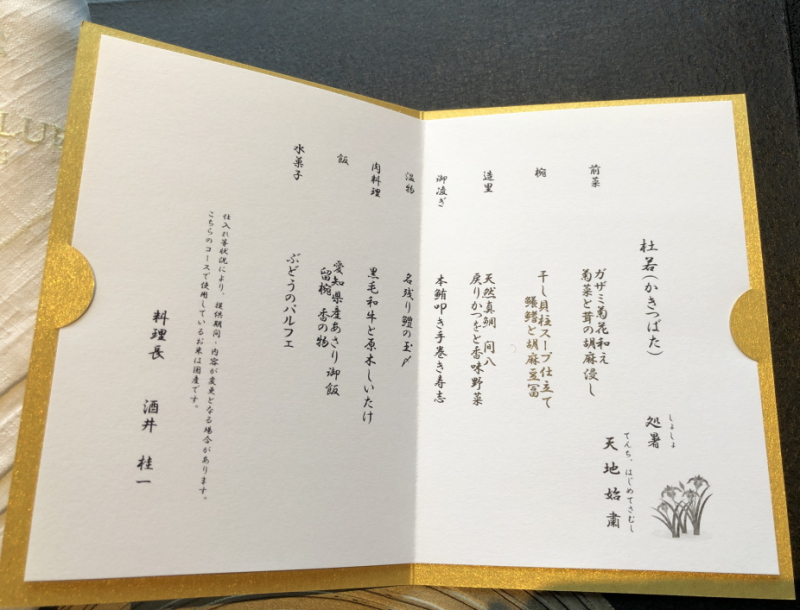 処暑
しょしょ
天地始粛
てんち、はじめてさむし
杜若(かきつばた)
前菜
ガザミ菊花和え
菊菜と茸の胡麻浸し
椀
干し貝柱スープ仕立て
鱶鰭と胡麻豆冨
造里
天然真鯛 間八
戻りかつをと香味野菜
御凌ぎ
本鮪叩き手巻き寿志
温物
名残り鱧の玉〆
肉料理
黒毛和牛と原木しいたけ
飯
愛知県産あさり御飯
留椀 香の物
水菓子
ぶどうのパルフェ
仕入れ等状況により、提供期間・内容が変更となる場合があります。
こちらのコースで使用しているお米は国産です。
料理長 酒井 桂一